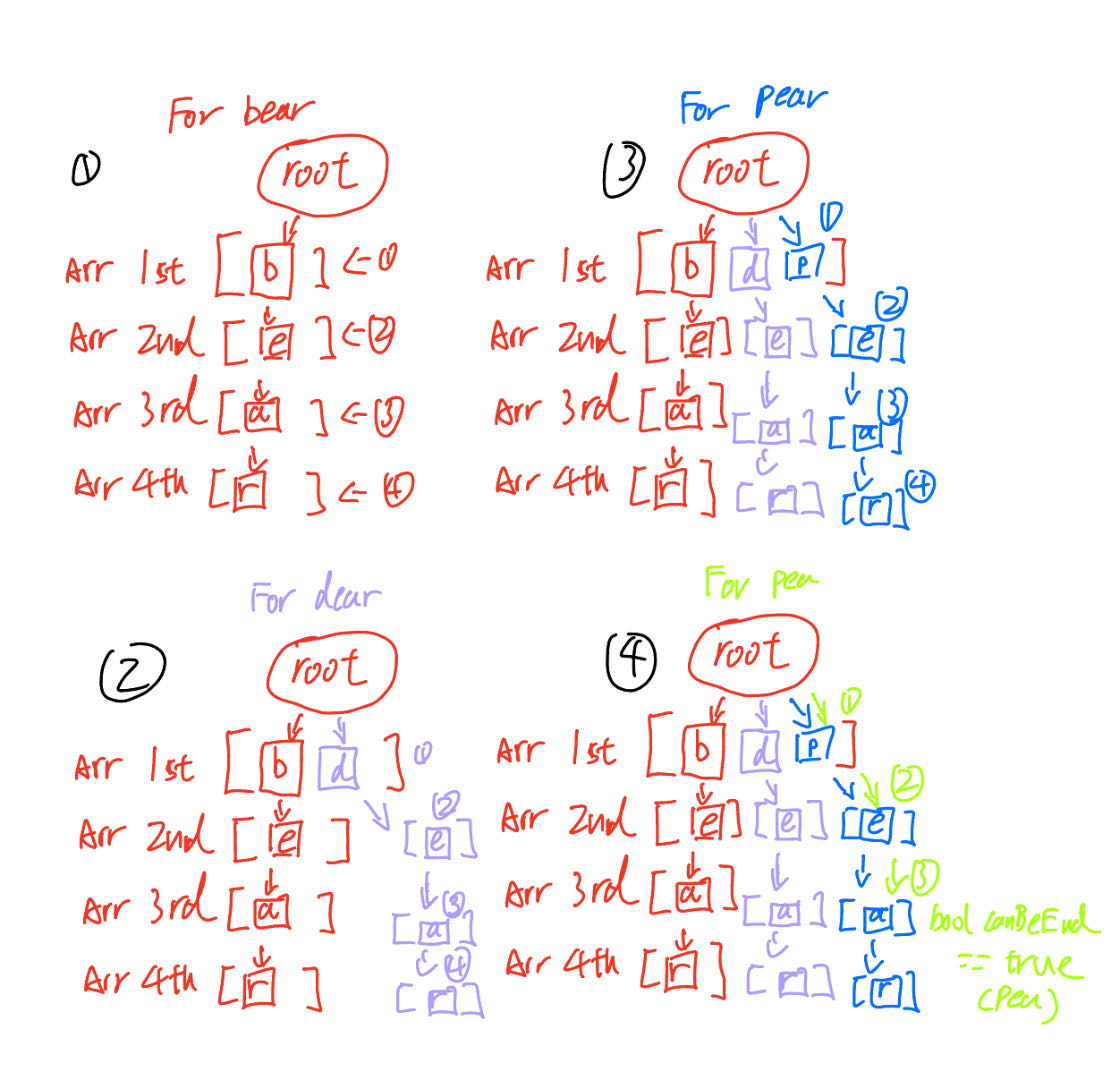 For bear
①
root
Arr 1st [ b ] ← ①
Arr 2nd [ e ] ← ②
Arr 3rd [ a ] ← ③
Arr 4th [ r ] ← ④
For pear
③
root
①
Arr 1st [ b d p ]
②
Arr 2nd [ e ] [ e ] [ e ]
③
Arr 3rd [ a ] [ a ] [ a ]
Arr 4th [ r ] [ r ] [ r ] ④
For dear
②
root
Arr 1st [ b d ] ①
②
Arr 2nd [ e ] [ e ]
③
Arr 3rd [ a ] [ a ]
④
Arr 4th [ r ] [ r ]
For pea
④
root
①
Arr 1st [ b d p ]
②
Arr 2nd [ e ] [ e ] [ e ]
③
Arr 3rd [ a ] [ a ] [ a ] bool canBeEnd
== true
(Pea)
Arr 4th [ r ] [ r ] [ r ]